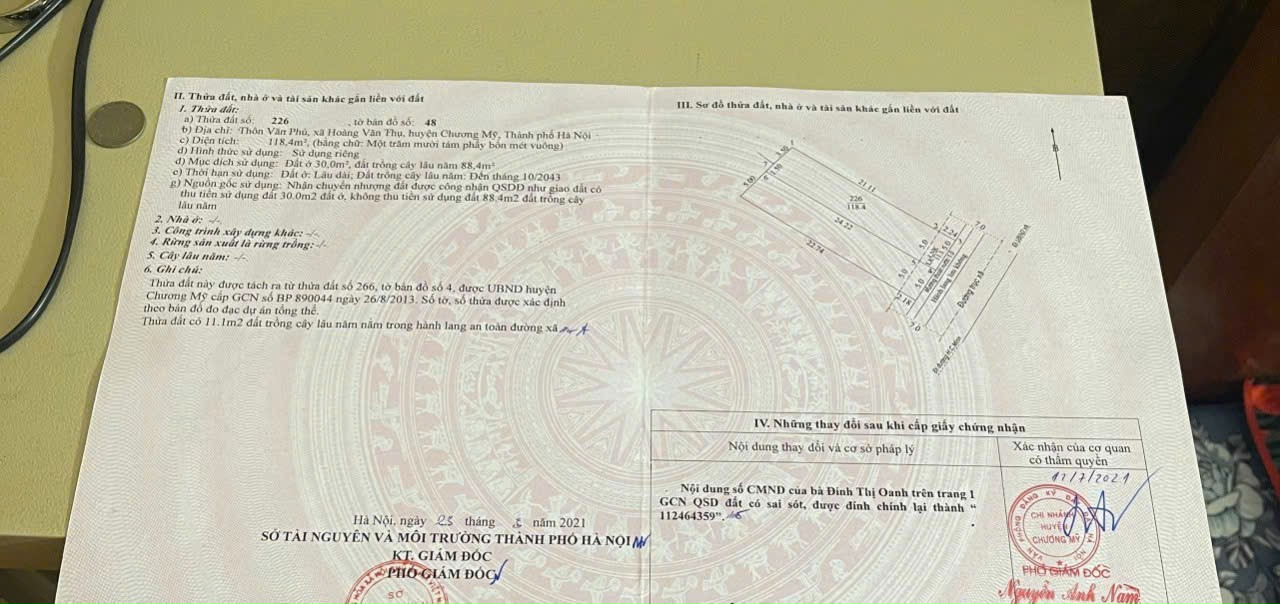 II. Thửa đất, nhà ở và tài sản khác gắn liền với đất
1. Thửa đất:
a) Thửa đất số: 226 , tờ bản đồ số: 48
b) Địa chỉ: Thôn Văn Phú, xã Hoàng Văn Thụ, huyện Chương Mỹ, Thành phố Hà Nội
c) Diện tích: 118,4m², (bằng chữ: Một trăm mười tám phẩy bốn mét vuông)
d) Hình thức sử dụng: Sử dụng riêng
đ) Mục đích sử dụng: Đất ở 30,0m², đất trồng cây lâu năm 88,4m²
e) Thời hạn sử dụng: Đất ở: Lâu dài; Đất trồng cây lâu năm: Đến tháng 10/2043
g) Nguồn gốc sử dụng: Nhận chuyển nhượng đất được công nhận QSDĐ như giao đất có
thu tiền sử dụng đất 30.0m2 đất ở, không thu tiền sử dụng đất 88.4m2 đất trồng cây
lâu năm
2. Nhà ở: -/-
3. Công trình xây dựng khác: -/-
4. Rừng sản xuất là rừng trồng: -/-
5. Cây lâu năm: -/-
6. Ghi chú:
Thửa đất này được tách ra từ thửa đất số 266, tờ bản đồ số 4, được UBND huyện
Chương Mỹ cấp GCN số BP 890044 ngày 26/8/2013. Số tờ, số thửa được xác định
theo bản đồ đo đạc dự án tổng thể.
Thửa đất có 11.1m2 đất trồng cây lâu năm nằm trong hành lang an toàn đường xã
Hà Nội, ngày 25 tháng năm 2021
SỞ TÀI NGUYÊN VÀ MÔI TRƯỜNG THÀNH PHỐ HÀ NỘI
KT. GIÁM ĐỐC
PHÓ GIÁM ĐỐC
SỞ
III. Sơ đồ thửa đất, nhà ở và tài sản khác gắn liền với đất
B
1.50
5.00
3.50
21.11
226
118.4
24.22
22.74
2.24
7.0
5.0
5.0
5.0
5.0
7.0
Hành lang lưu không
Đường trục xã
IV. Những thay đổi sau khi cấp giấy chứng nhận
Nội dung thay đổi và cơ sở pháp lý
Xác nhận của cơ quan
có thẩm quyền
Nội dung số CMND của bà Đinh Thị Oanh trên trang 1
GCN QSD đất có sai sót, được đính chính lại thành “
112464359”.
12/7/2021
VĂN PHÒNG ĐĂNG KÝ ĐẤT ĐAI HÀ NỘI
CHI NHÁNH
HUYỆN
CHƯƠNG MỸ
PHÓ GIÁM ĐỐC
Nguyễn Anh Nam